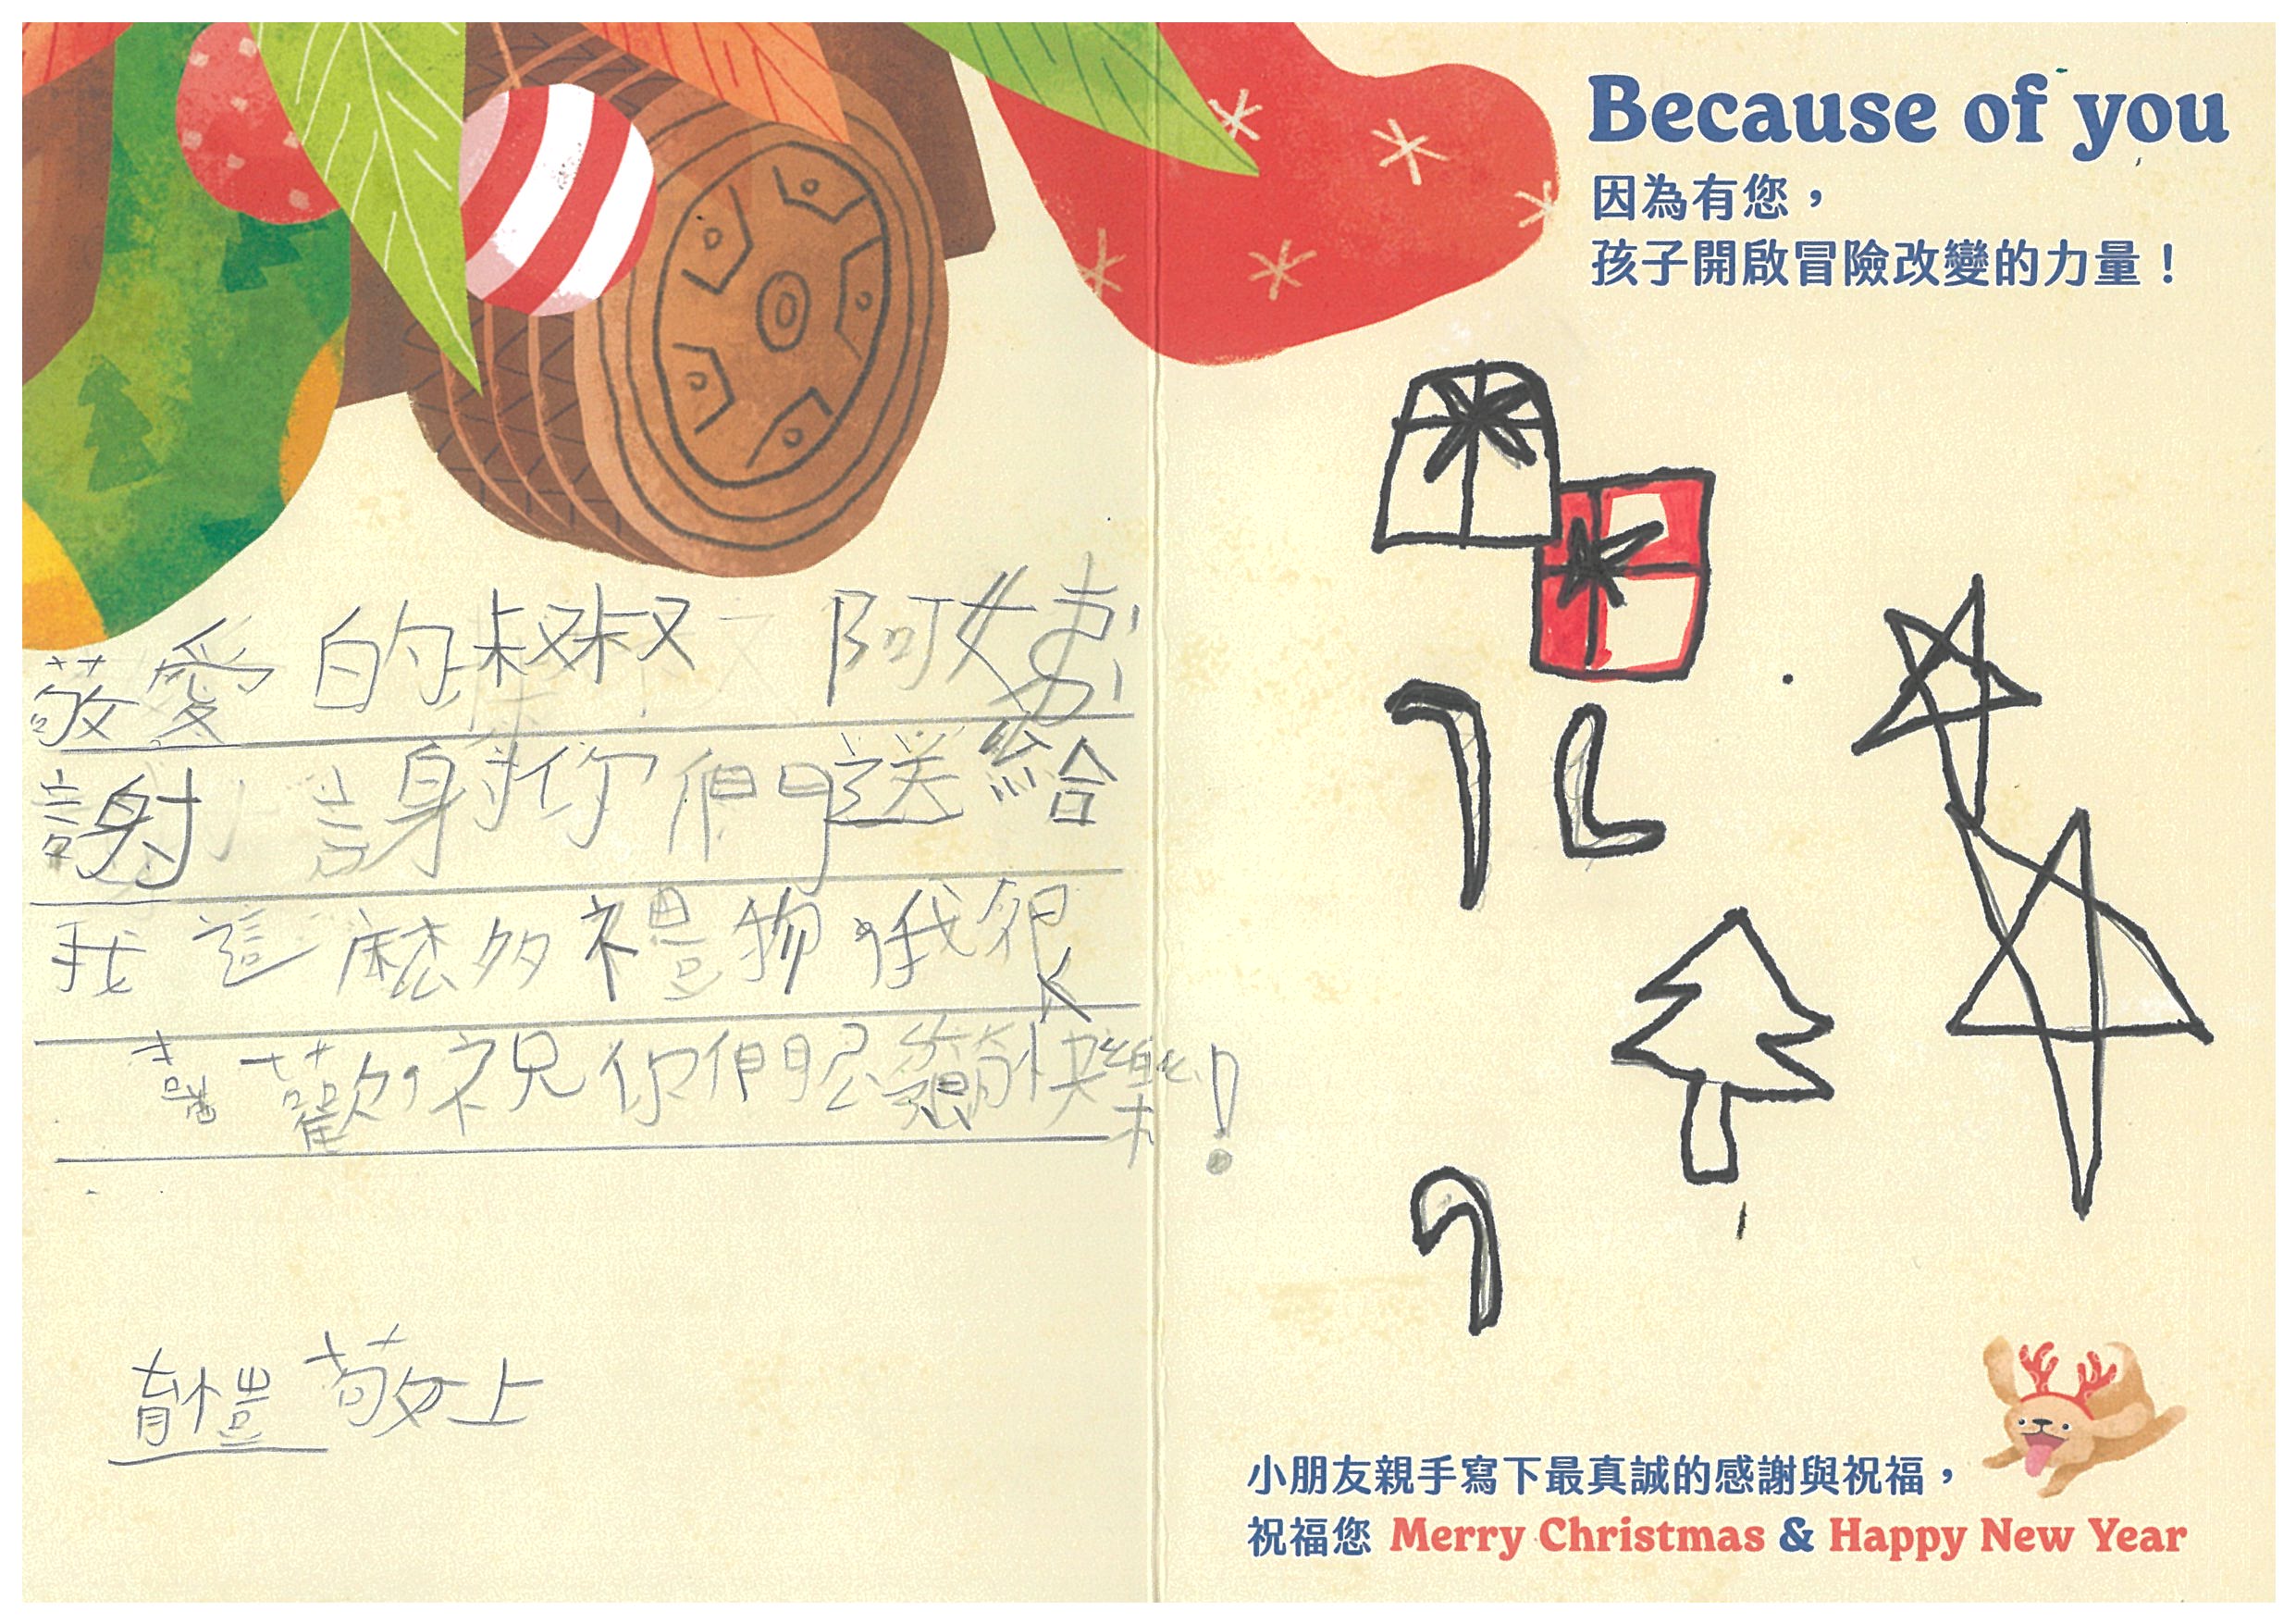 Because of you
因為有您，
孩子開啟冒險改變的力量！
敬愛的叔叔 阿姨
謝謝你們送給
我這麼多禮物，我很
喜歡，祝你們恩籣快樂！
育愷 敬上
小朋友親手寫下最真誠的感謝與祝福，
祝福您 Merry Christmas & Happy New Year